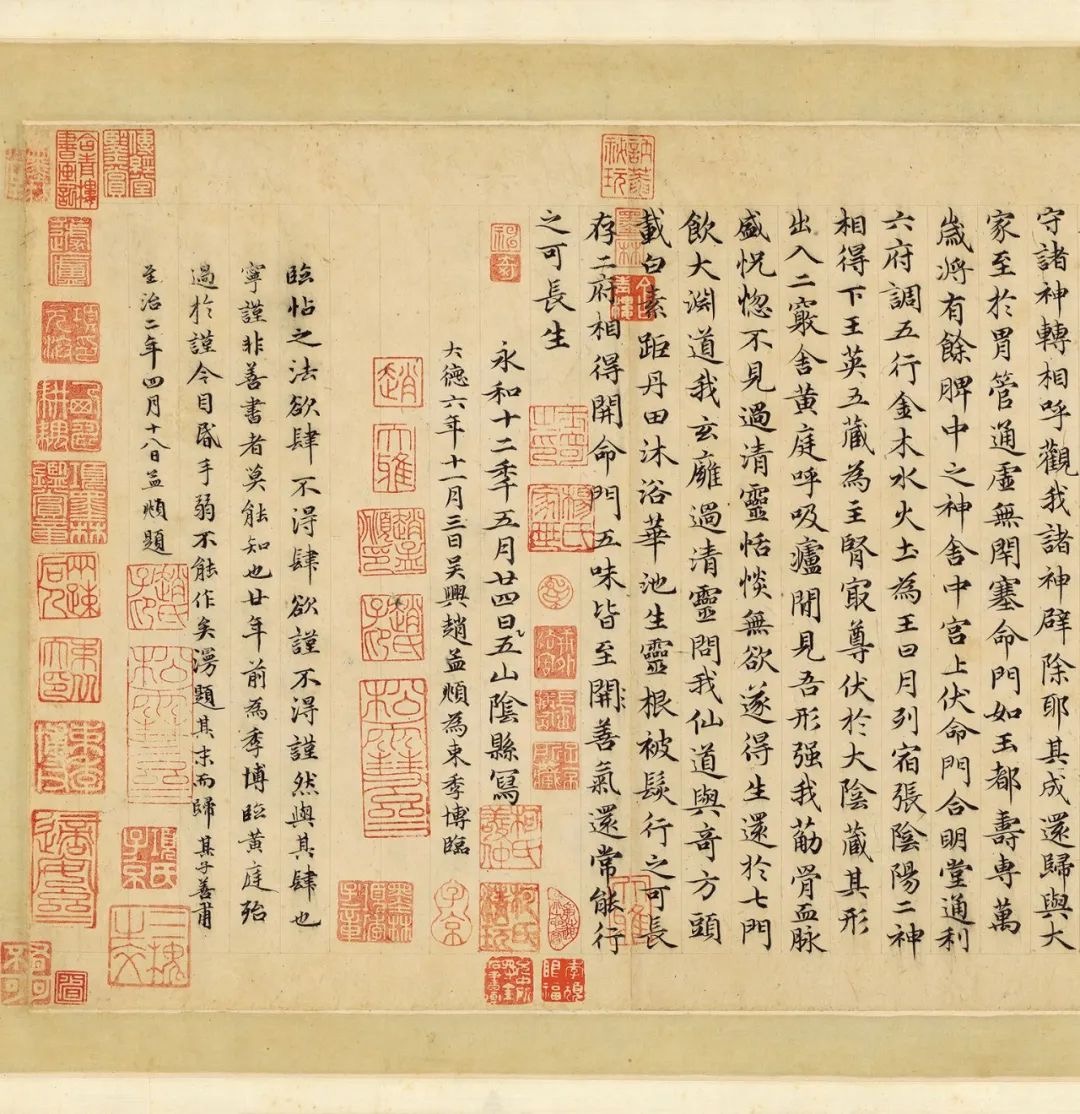 守諸神轉相呼觀我諸神辟除耶其成還歸與大
家至於胃管通虛無閉塞命門如玉都壽專萬
歲將有餘脾中之神舍中宮上伏命門合明堂通利
六府調五行金木水火土為王日月列宿張陰陽二神
相得下王英五藏為主腎冣尊伏於大陰藏其形
出入二竅舍黃庭呼吸廬閒見吾形强我筋骨血脉
盛恍惚不見過清靈恬惔無欲遂得生還於七門
飲大淵道我玄廱過清靈問我仙道與奇方頭
載白素距丹田沐浴華池生靈根被髮行之可長
存二府相得開命門五味皆至開善氣還常能行
之可長生
永和十二年五月廿四日五山陰縣寫
大德六年十一月三日吴興趙孟頫為東季博臨
臨帖之法欲肆不得肆欲謹不得謹然與其肆也
寧謹非善書者莫能知也廿年前為季博臨黃庭殆
過於謹今目昏手弱不能作矣漫題其末而歸其子善甫
至治二年四月十八日孟頫題
趙
大雅
趙孟頫印
趙氏子昂
松雪齋
趙氏子昂
松雪齋
項氏子京
子京
墨林